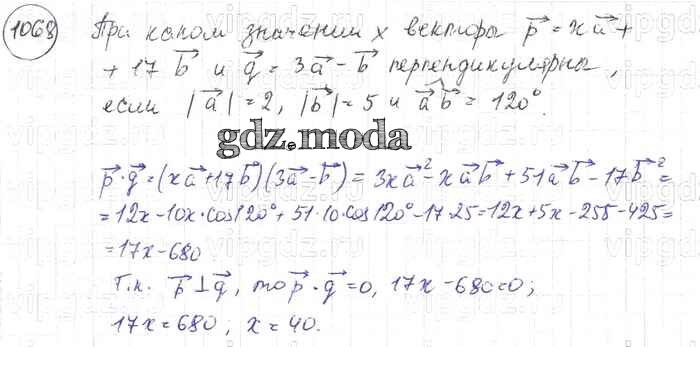 1068 При каком значении x векторы p⃗ = xa⃗ +
+ 17 b⃗ и q⃗ = 3a⃗ - b⃗ перпендикулярны,
если |a⃗| = 2, |b⃗| = 5 и a⃗b⃗ = 120°.
gdz.moda
p⃗·q⃗ = (xa⃗+17b⃗)(3a⃗-b⃗) = 3xa⃗² - xa⃗b⃗ + 51a⃗b⃗ - 17b⃗² =
= 12x - 10x·cos120° + 51·10·cos120° - 17·25 = 12x + 5x - 255 - 425 =
= 17x - 680
Т.к. p⃗ ⊥ q⃗, то p⃗·q⃗ = 0, 17x - 680 = 0;
17x = 680; x = 40.